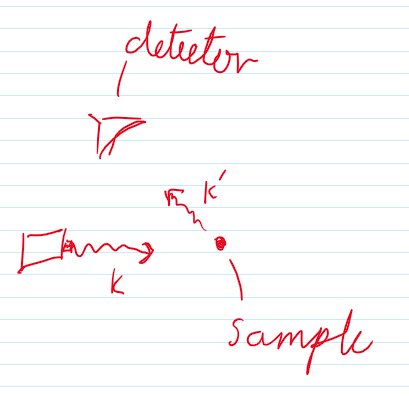 detector
k'
k
sample